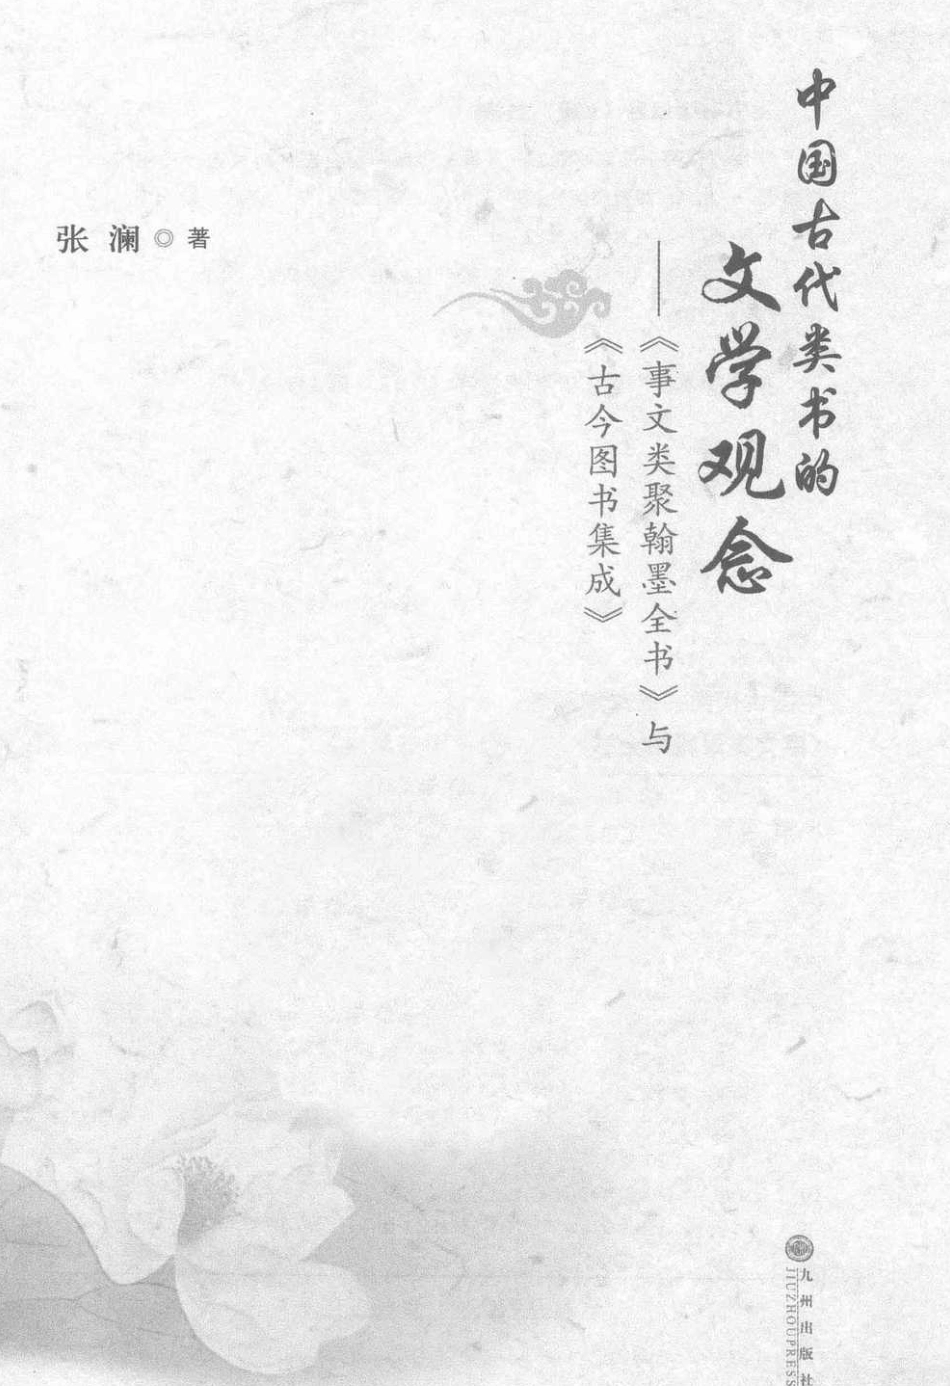 中国古代类书的
文学观念
——《事文类聚翰墨全书》与
《古今图书集成》
张 澜 ◎ 著
九州出版社
JIUZHOUPRESS